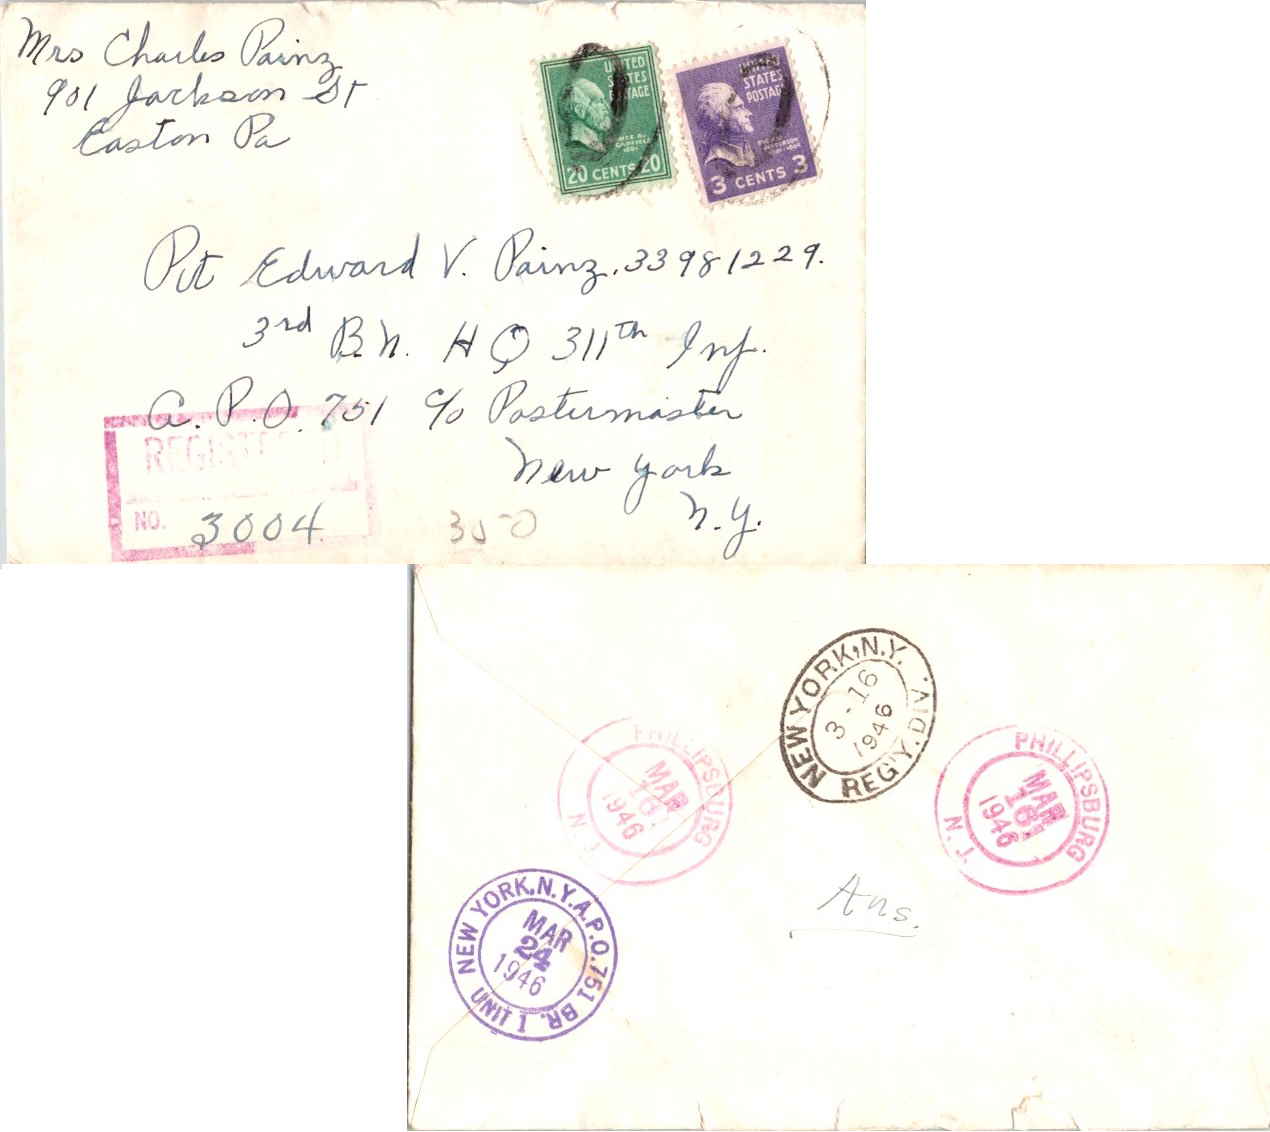 Mrs Charles Painz
901 Jackson St
Easton Pa
UNITED
STATES
POSTAGE
20 CENTS 20
UNITED
STATES
POSTAGE
3 CENTS 3
Pvt Edward V. Painz. 33981229.
3rd B.N. H Q 311th Inf.
A. P. O. 751 c/o Postermaster
New York
N.Y.
REGISTERED
NO. 3004
350
NEW YORK, N.Y.
3-16
1946
REG'Y. DIV.
PHILLIPSBURG
MAR
16
1946
N. J.
PHILLIPSBURG
MAR
16
1946
N. J.
Ans.
NEW YORK, N.Y. A.P.O. 751 BR.
MAR
24
1946
UNIT 1